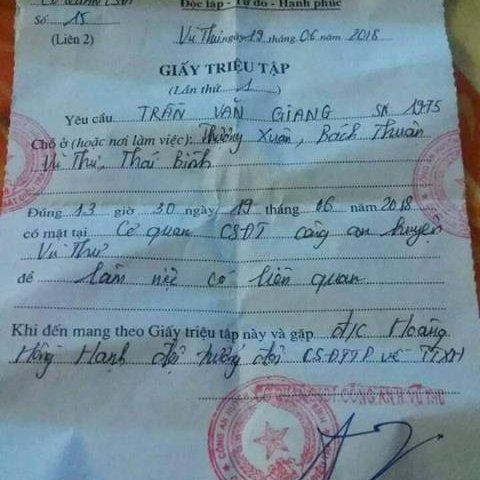 Độc lập - Tự do - Hạnh phúc
Số 15
(Liên 2)
Vũ Thư ngày 19 tháng 06 năm 2018
GIẤY TRIỆU TẬP
(Lần thứ 1)
Yêu cầu TRẦN VĂN GIANG SN 1975
Chỗ ở (hoặc nơi làm việc): Thượng Xuân, Bách Thuận
Vũ Thư, Thái Bình
Đúng 13 giờ 30 ngày 19 tháng 06 năm 2018
có mặt tại Cơ quan CSĐT công an huyện
Vũ Thư
để làm việc có liên quan
Khi đến mang theo Giấy triệu tập này và gặp đ/c Hoàng
Hồng Hạnh đội trưởng đội CSĐTTP về TTXH